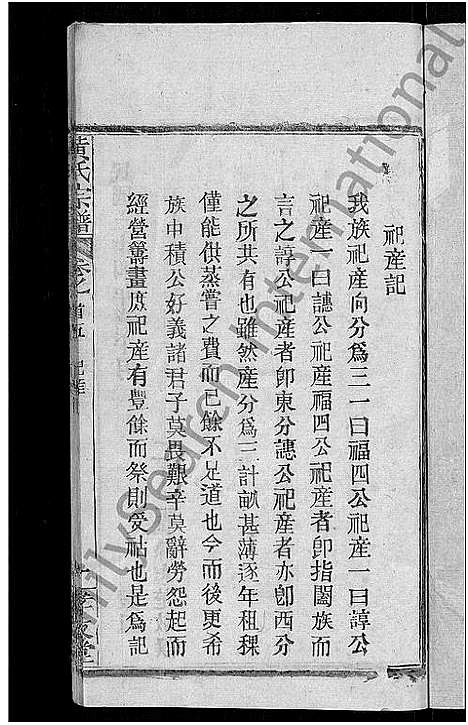 祀產記
我族祀產向分爲三一曰福四公祀產一曰諄公
祀產一曰譓公祀產福四公祀產者卽指闔族而
言之諄公祀產者卽東分譓公祀產者亦卽西分
之所共有也雖然產分爲三計畝甚薄逐年租稞
僅能供蒸嘗之費而已餘不足道也今而後更希
族中積公好義諸君子莫畏艱辛莫辭勞怨起而
經營籌畫庶祀產有豐餘而祭則受祜也是爲記
黃氏宗譜
卷之首五 祀產
FamilySearch International